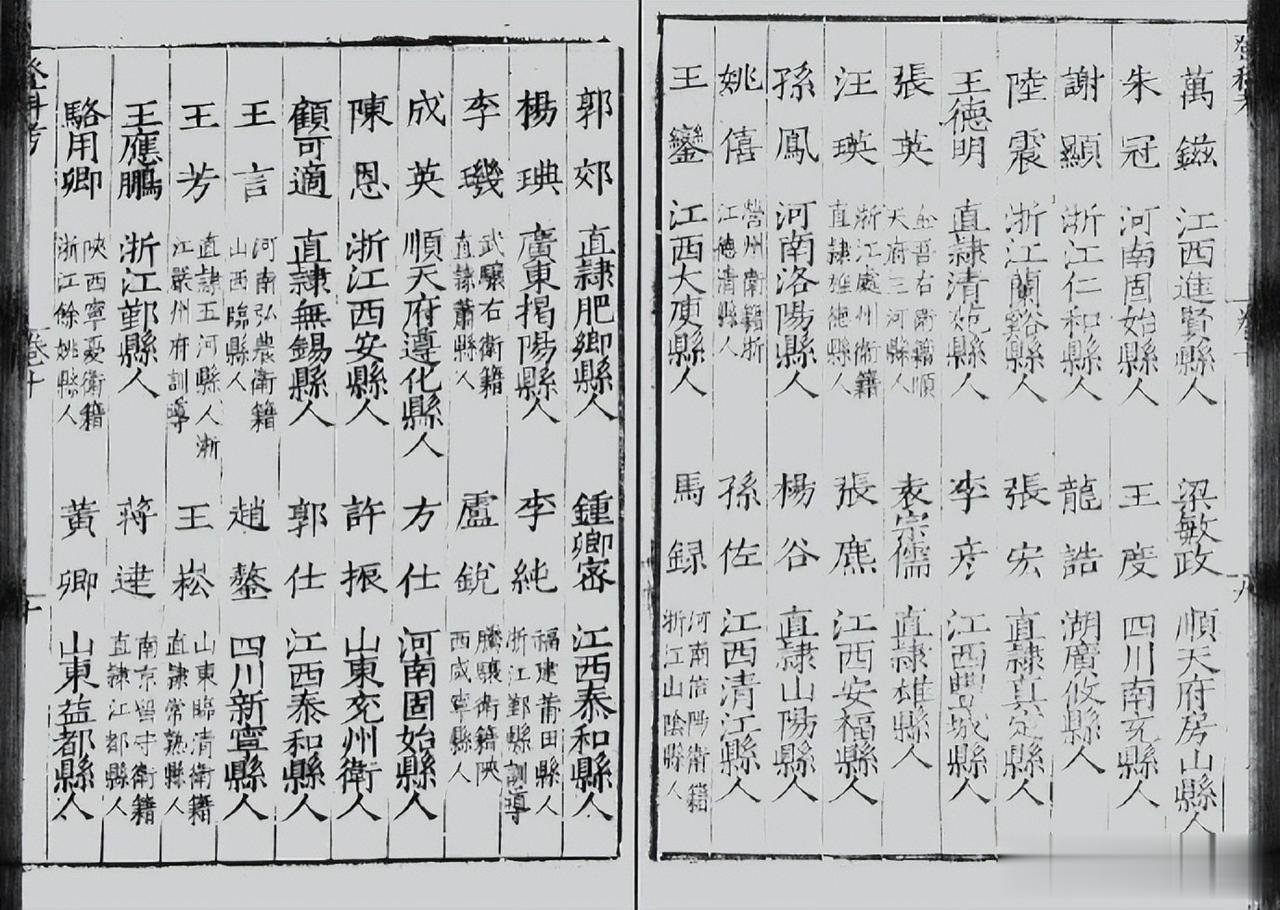 萬鎡 江西進賢縣人
梁敏政 順天府房山縣人
朱冠 河南固始縣人
王度 四川南充縣人
謝顯 浙江仁和縣人
龍誥 湖廣攸縣人
陸震 浙江蘭谿縣人
張宏 直隷真定縣人
王德明 直隷清苑縣人
李彦 江西豐城縣人
張英 金吾右衛籍順天府三河縣人
袁宗儒 直隷雄縣人
汪瑛 浙江處州衛籍直隷旌德縣人
張鏕 江西安福縣人
孫鳳 河南洛陽縣人
楊谷 直隷山陽縣人
姚僖 營州衛籍浙江德清縣人
孫佐 江西清江縣人
王鑾 江西大庾縣人
馬録 河南信陽衛籍浙江山陰縣人
登科考
卷十
郭郊 直隷肥鄉縣人
鍾卿宻 江西泰和縣人
楊琠 廣東揭陽縣人
李純 福建莆田縣人浙江鄞縣訓導
李璣 武驤右衛籍直隷蕭縣人
盧鋭 騰驤衛籍陜西咸寧縣人
成英 順天府遵化縣人
方仕 河南固始縣人
陳恩 浙江西安縣人
許振 山東兖州衛人
顧可適 直隷無錫縣人
郭仕 江西泰和縣人
王言 河南弘農衛籍山西臨縣人
趙鏊 四川新寧縣人
王芳 直隷五河縣人浙江嚴州府訓導
王崧 山東臨清衛籍直隷常熟縣人
王應鵬 浙江鄞縣人
蔣達 南京留守衛籍直隷江都縣人
駱用卿 陜西寧夏衛籍浙江餘姚縣人
黃卿 山東益都縣人
登科考
卷十
十